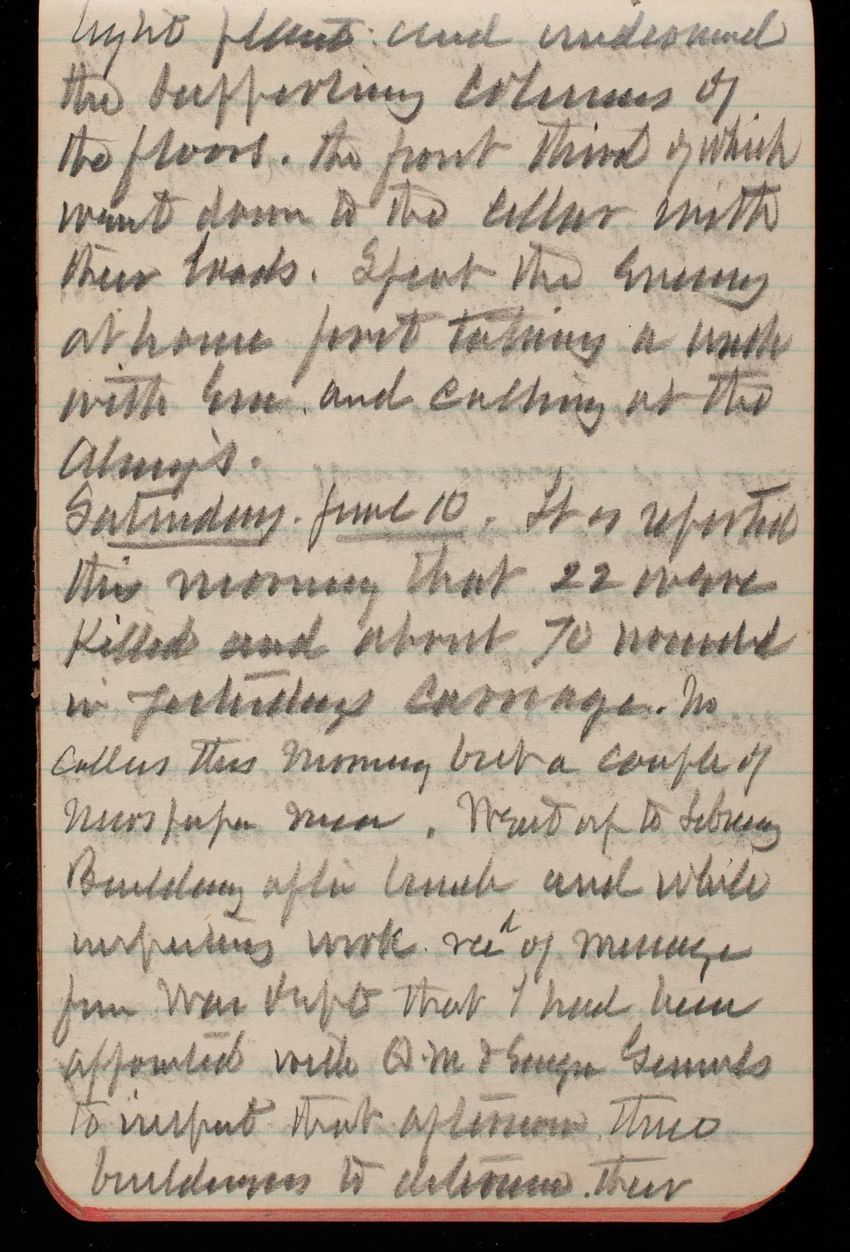 light plant and undermined
the supporting columns of
the floors. the front third of which
went down to the cellar with
their loads. Spent the Evening
at home first taking a walk
with Em. and calling at the
Almy's.
Saturday. June 10. It is reported
this morning that 22 were
Killed and about 70 wounded
in yesterdays carnage. No
callers this morning but a couple of
Newspaper men. Went up to Library
Building after lunch and while
inspecting work rec^d of message
from War Dept that I had been
appointed with Q.M & Engr Generals
to inspect that afternoon three
buildings to determine their